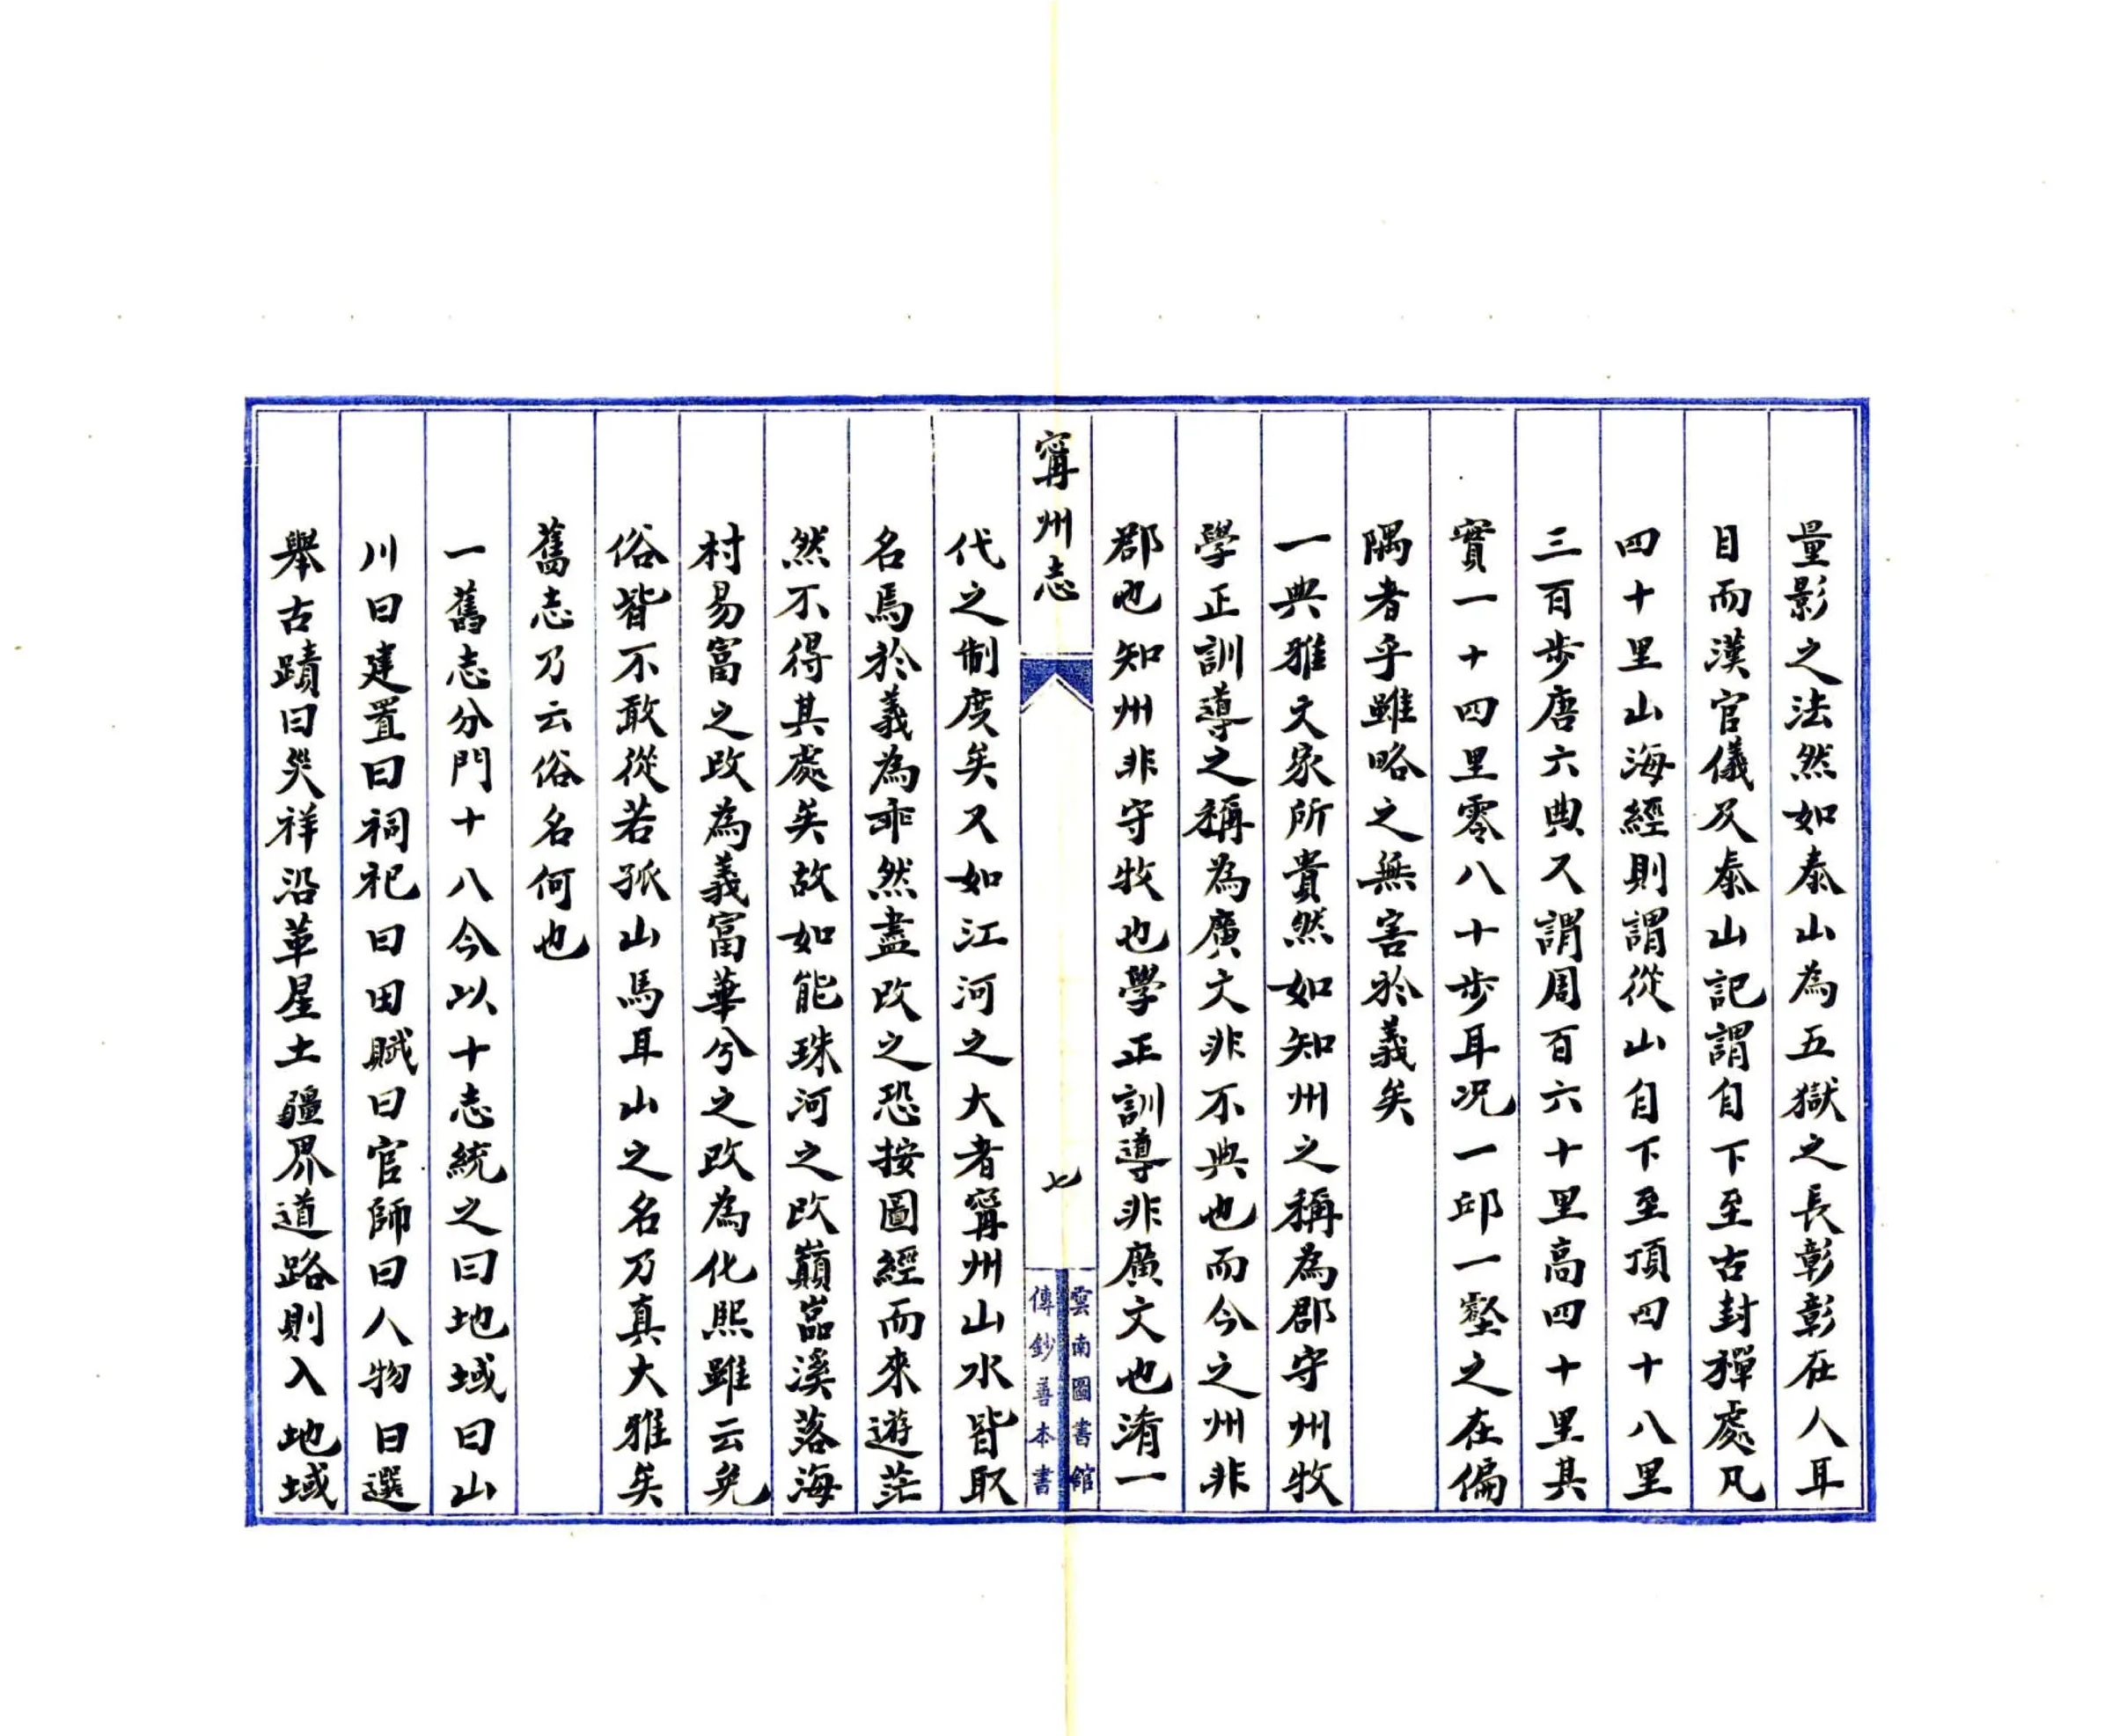 量影之法然如泰山為五獄之長彰彰在人耳
目而漢官儀及泰山記謂自下至古封禪處凡
四十里山海經則謂從山自下至頂四十八里
三百步唐六典又謂周百六十里高四十里其
實一十四里零八十步耳况一邱一壑之在偏
隅者乎雖略之無害於義矣
一典雅文家所貴然如知州之稱為郡守州牧
學正訓導之稱為廣文非不典也而今之州非
郡也知州非守牧也學正訓導非廣文也淆一
甯州志
七
雲南圖書館
傳鈔善本書
代之制度矣又如江河之大者甯州山水皆取
名焉於義為乖然盡改之恐按圖經而來遊茫
然不得其處矣故如能珠河之改巔嵓溪落海
村易富之改為義富華兮之改為化熙雖云免
俗皆不敢從若孤山馬耳山之名乃真大雅矣
舊志乃云俗名何也
一舊志分門十八今以十志統之曰地域曰山
川曰建置曰祠祀曰田賦曰官師曰人物曰選
舉古蹟曰災祥沿革星土疆界道路則入地域